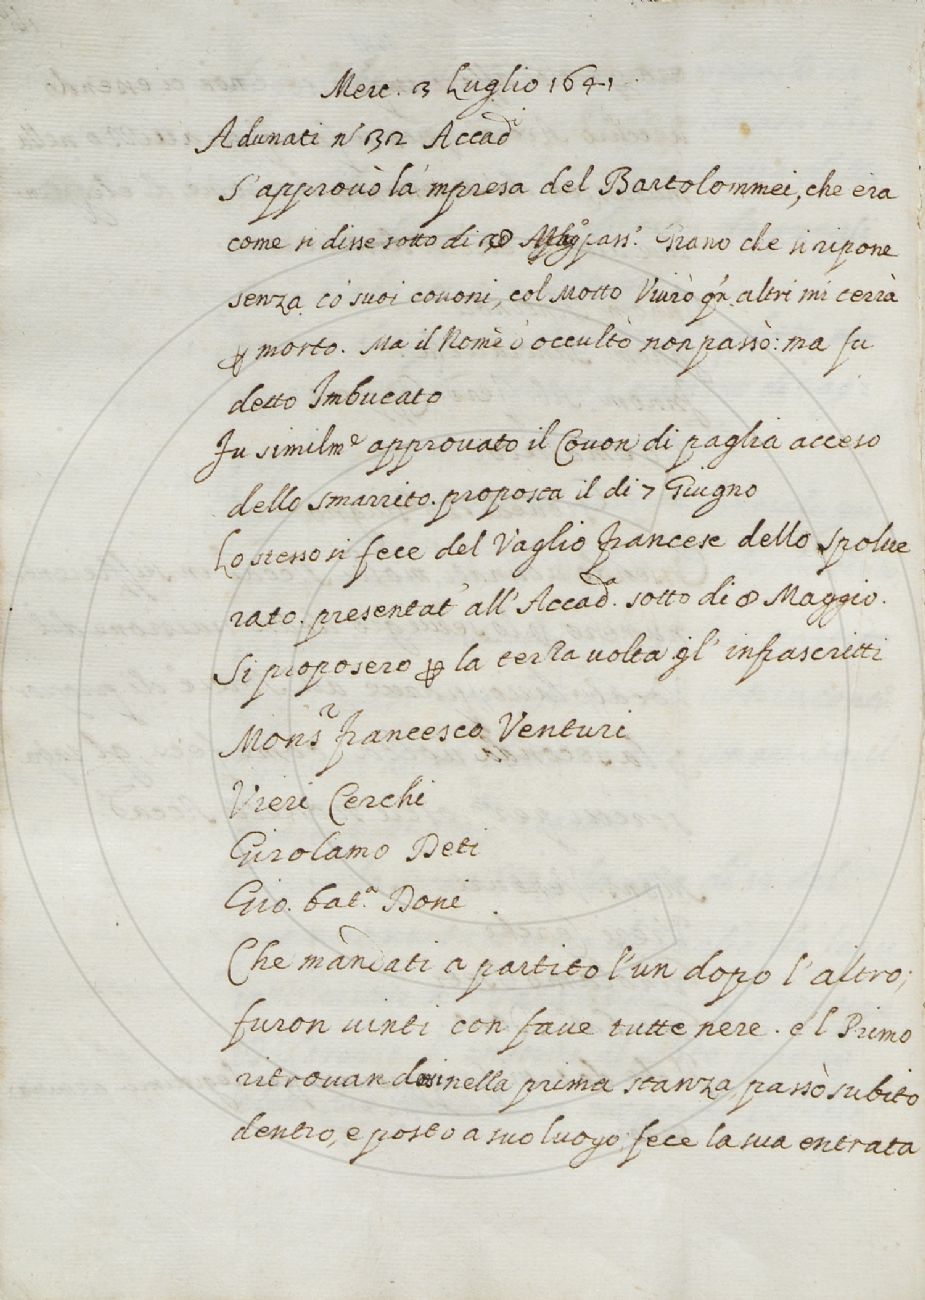 Merc. 3 Luglio 1641
Adunati n° 32 Accad.
S'approvò la 'mpresa del Bartolommei, che era
come si disse sotto di pass.° Grano che si ripone
senza co' suoi covoni, col Motto Vivrò altri mi terrà
morto. Ma il Nome d'occulto non passò: ma fu
detto Imbucato
Fu similm.e approvato il Covon di paglia acceso
dello Smarrito. proposta il di 7 Giugno
Lo stesso si fece del Vaglio francese dello Spolve
rato. presentat' all'Accad.a sotto di 8 Maggio.
Si proposero la terza volta gl' infrascritti
Mons.r Francesco Venturi
Vieri Cerchi
Girolamo Deti
Gio. Bat.a Doni
Che mandati a partito l'un dopo l'altro;
furon vinti con fave tutte nere. e 'l Primo
ritrovandosi nella prima stanza, passò subito
dentro, e posto a suo luogo fece la sua entrata